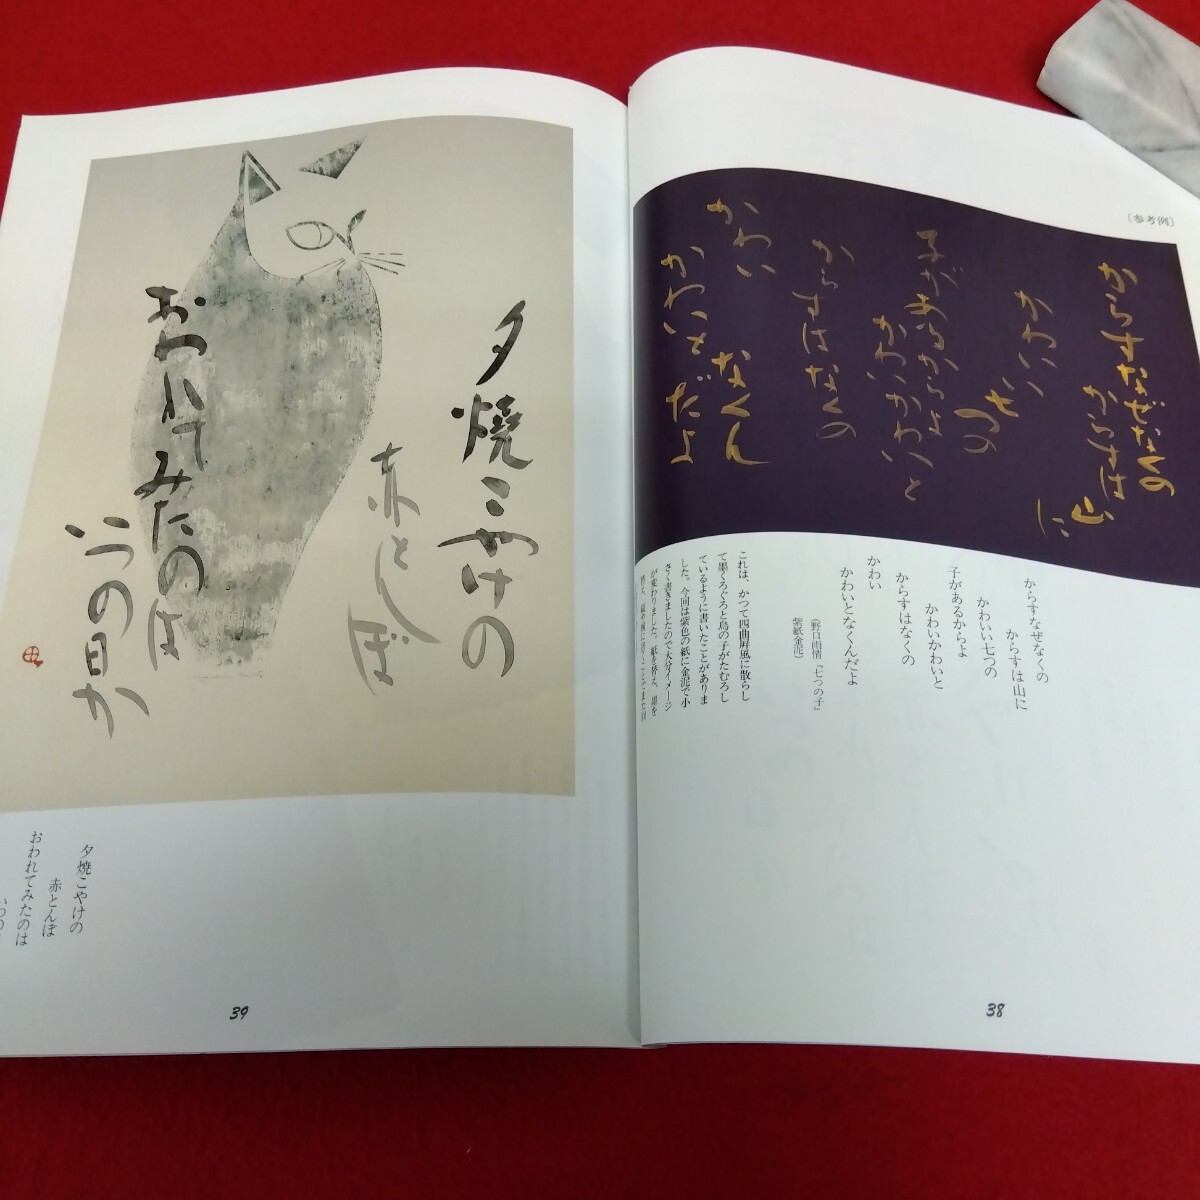 〔参考例〕
からすなぜなくの
からすは山
に
かわいい
七つの
子があるからよ
かわいかわいと
からすはなくの
かわい
かわいと
なくんだよ
からすなぜなくの
からすは山に
かわいい七つの
子があるからよ
かわいかわいと
からすはなくの
かわい
かわいとなくんだよ
(野口雨情『七つの子』
紫紙金泥)
これは、かつて四曲屏風に散らし
て墨くろぐろと烏の子がたむろし
ているように書いたことがありま
した。今回は紫色の紙に金泥で小
さく書きましたので大分イメージ
が変わりました。紙を替え、墨を
38
夕燒こやけの
赤とんぼ
おわれてみたのは
いつの日か
夕焼こやけの
赤とんぼ
おわれてみたのは
39